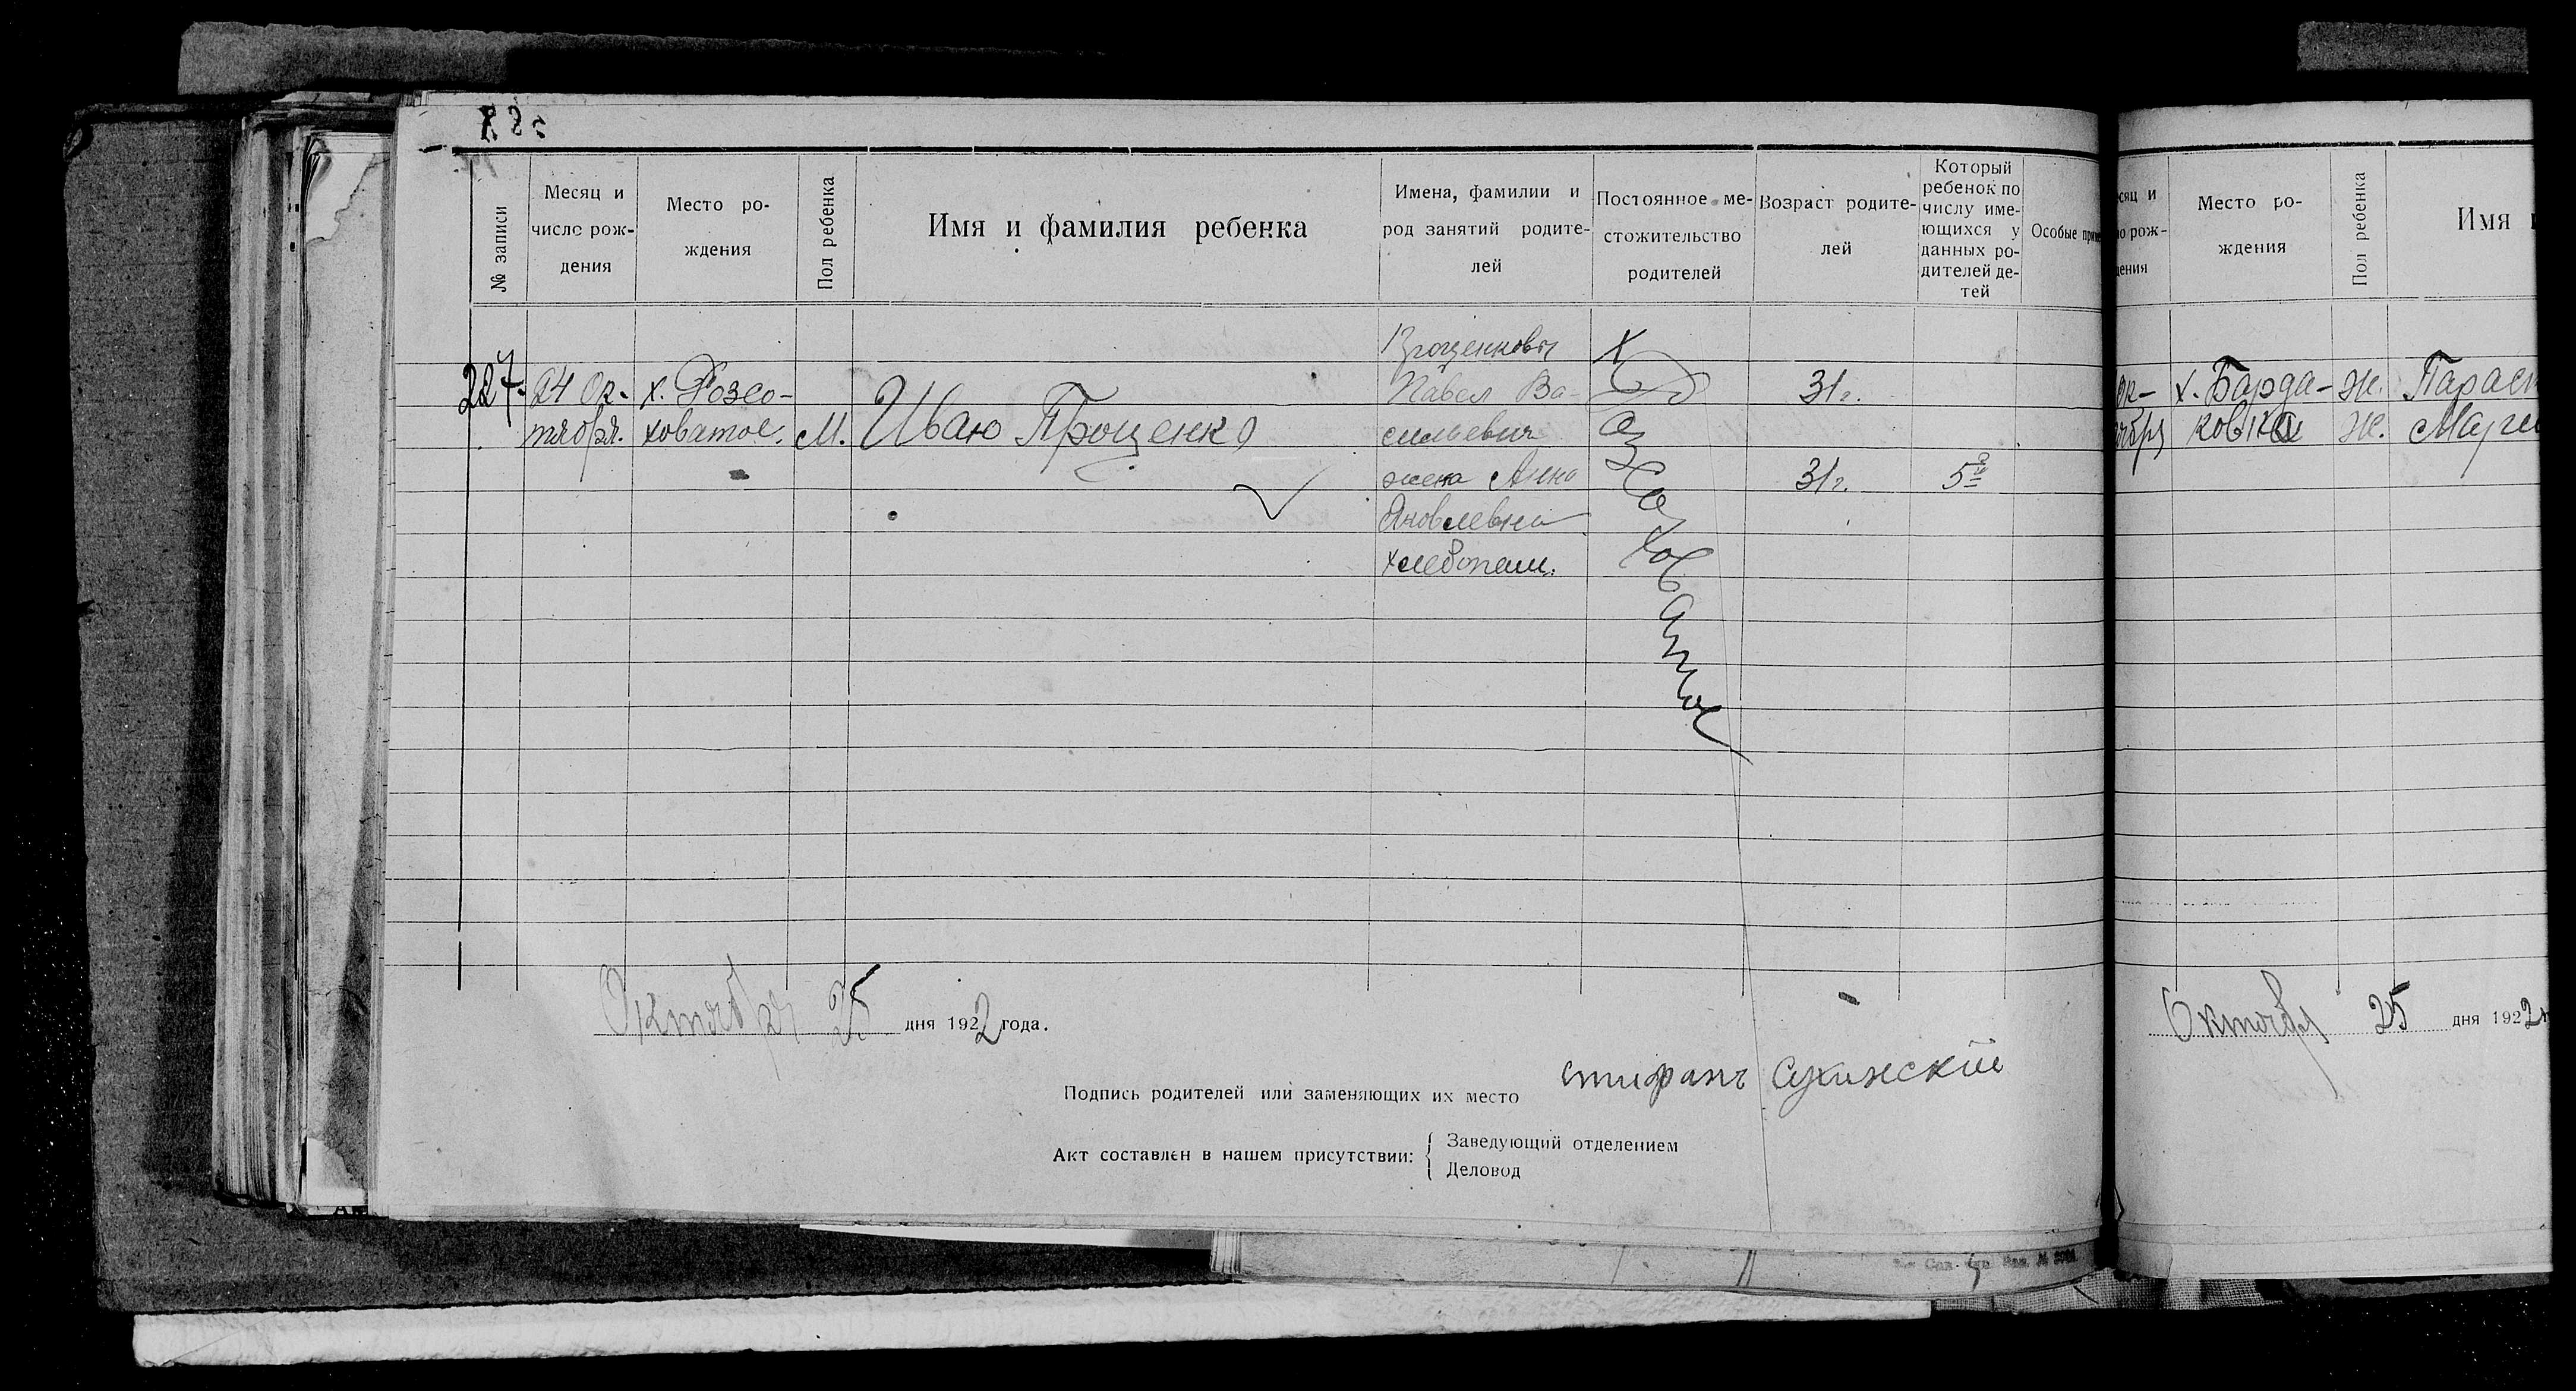 № записи
Месяц и
число рож-
дения
Место ро-
ждения
Пол ребенка
Имя и фамилия ребенка
Имена, фамилии и
род занятий родите-
лей
Постоянное ме-
стожительство
родителей
Возраст родите-
лей
Который
ребенок по
числу име-
ющихся у
данных ро-
дителей де-
тей
Особые
227.
24 Ок-
тября.
х. Розсо-
ховатое.
М.
Иваю Проценко
Проценковы
Павел Ва-
сильевич
жена Анна
Яковлевна
хлебопаш.
31 г.
31 г.
Октября 25 дня 1922 года.
Подпись родителей или заменяющих их место
стифанъ Сухинский
Акт составлен в нашем присутствии:
Заведующий отделением
Деловод
Место ро-
ждения
Пол ребенка
Имя
х. Барда-
ковка
Ж.
Ж.
Октября 25 дня 1922